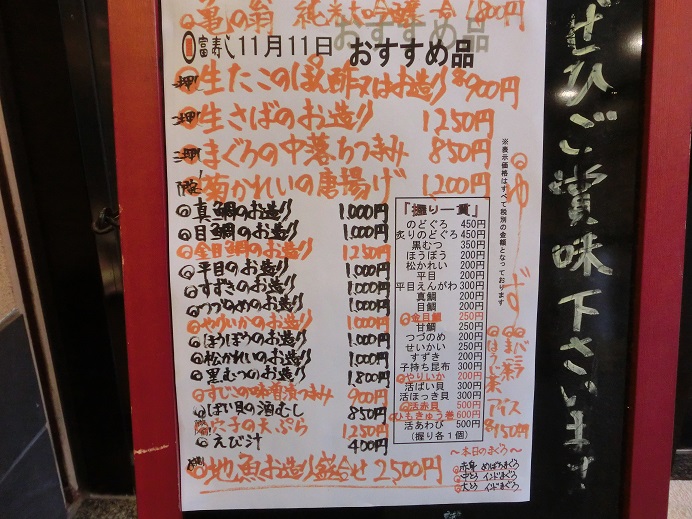 亀の翁 純米大吟醸 一合 1800円
富寿し 11月11日 おすすめ品
一押! 生たこのぽん酢又はお造り 900円
二押! 生さばのお造り 1250円
三押! まぐろの中落ちつまみ 850円
菊かれいの唐揚げ 1,200円
真鯛のお造り 1,000円
目鯛のお造り 1,000円
金目鯛のお造り 1,250円
平目のお造り 1,000円
すずきのお造り 1,000円
つづのめのお造り 1,000円
やりいかのお造り 1,000円
ほうぼうのお造り 1,000円
松かれいのお造り 1,000円
黒むつのお造り 1,800円
すじこの味噌漬つまみ 900円
ばい貝の酒むし 850円
穴子の天ぷら 1,250円
えび汁 400円
地魚お造り盛合せ 2,500円
「握り一貫」
のどぐろ 450円
炙りのどぐろ 450円
黒むつ 350円
ほうぼう 200円
松かれい 200円
平目 200円
平目えんがわ 300円
真鯛 200円
目鯛 200円
金目鯛 250円
甘鯛 250円
つづのめ 200円
せいかい 250円
すずき 200円
子持ち昆布 300円
やりいか 200円
活ばい貝 300円
活ほっき貝 300円
活赤貝 500円
ひもきゅう巻 600円
活あわび 500円
(握り各1個)
※表示価格はすべて税別の金額となっております
ゆず
バニラ
まっ茶
ほうじ茶
アイス
各150円
～本日のまぐろ～
赤身 めばちまぐろ
中とろ インドまぐろ
大とろ インドまぐろ
ぜひご賞味下さいませ